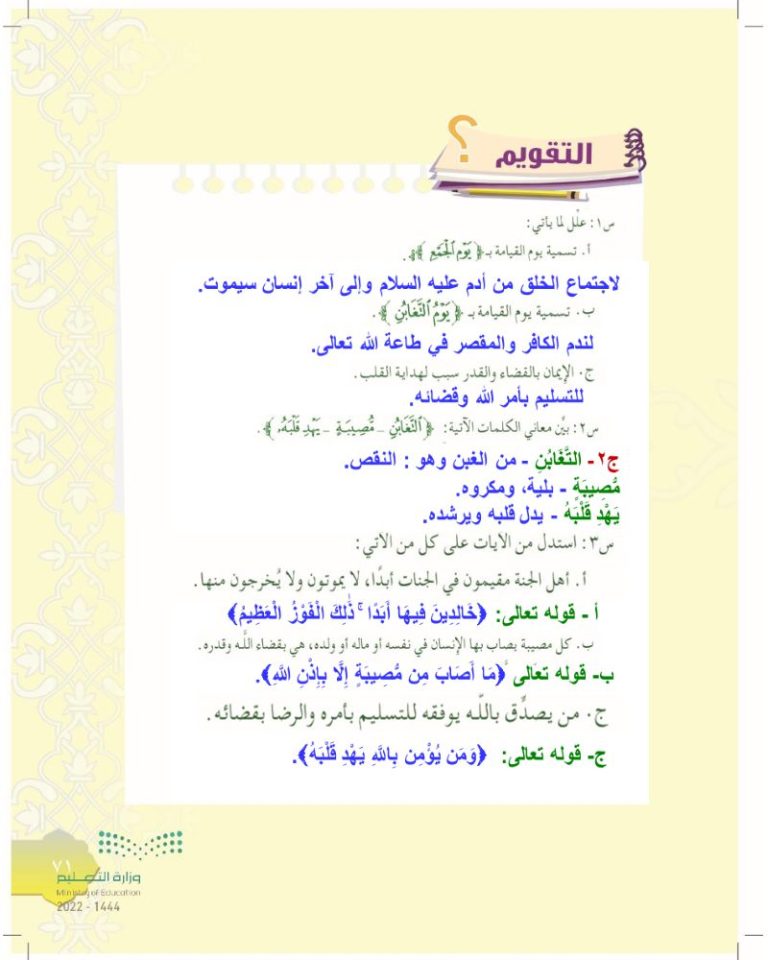 ؟
التقويم
س١: علّل لما يأتي:
أ. تسمية يوم القيامة بـ ﴿ يَوْمِ ٱلْجَمْعِ ﴾.
لاجتماع الخلق من أدم عليه السلام وإلى آخر إنسان سيموت.
ب. تسمية يوم القيامة بـ ﴿ يَوْمُ ٱلتَّغَابُنِ ﴾.
لندم الكافر والمقصر في طاعة الله تعالى.
ج. الإيمان بالقضاء والقدر سبب لهداية القلب.
للتسليم بأمر الله وقضائه.
س٢: بيِّن معاني الكلمات الآتية: ﴿ ٱلتَّغَابُنِ – مُّصِيبَةٍ – يَهْدِ قَلْبَهُۥ ﴾.
ج٢- التَّغَابُنِ - من الغبن وهو : النقص.
مُّصِيبَةٍ - بلية، ومكروه.
يَهْدِ قَلْبَهُ - يدل قلبه ويرشده.
س٣: استدل من الآيات على كل من الآتي:
أ. أهل الجنة مقيمون في الجنات أبدًا، لا يموتون ولا يُخرجون منها.
أ - قوله تعالى: ﴿خَالِدِينَ فِيهَا أَبَدًا ۚ ذَٰلِكَ الْفَوْزُ الْعَظِيمُ﴾
ب. كل مصيبة يصاب بها الإنسان في نفسه أو ماله أو ولده، هي بقضاء اللَّه وقدره.
ب- قوله تعالى ﴿مَا أَصَابَ مِن مُّصِيبَةٍ إِلَّا بِإِذْنِ اللَّهِ﴾.
ج. من يصدِّق باللَّه يوفقه للتسليم بأمره والرضا بقضائه.
ج- قوله تعالى: ﴿وَمَن يُؤْمِن بِاللَّهِ يَهْدِ قَلْبَهُ﴾.
٧١
وزارة التعليم
Ministry of Education
2022 - 1444